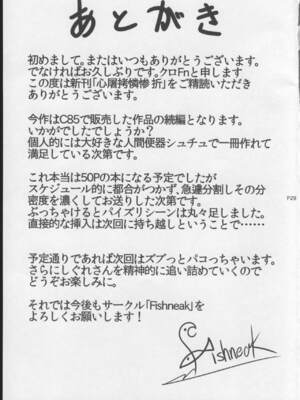 あとがき
初めまして。またはいつもありがとうございます。
でなければお久しぶりです。クロFnと申します
この度は新刊「心屠拷憐惨 折」をご精読いただき
ありがとうございます。
今作はC85で販売した作品の続編となります。
いかがでしたでしょうか?
個人的には大好きな人間便器シュチュで一冊作れて
満足している次第です。
これ本当は50Pの本になる予定でしたが
スケジュール的に都合がつかず、急遽分割しその分
密度を濃くしてお送りした次第です。
ぶっちゃけるとパイズリシーンは丸々足しました。
直接的な挿入は次回に持ち越しということで……
予定通りであれば次回はズブっとパコっちゃいます。
さらにしぐれさんを精神的に追い詰めていくので
どうぞお楽しみに。
それでは今後もサークル「Fishneak」を
よろしくお願いします!
Fishneak
P29